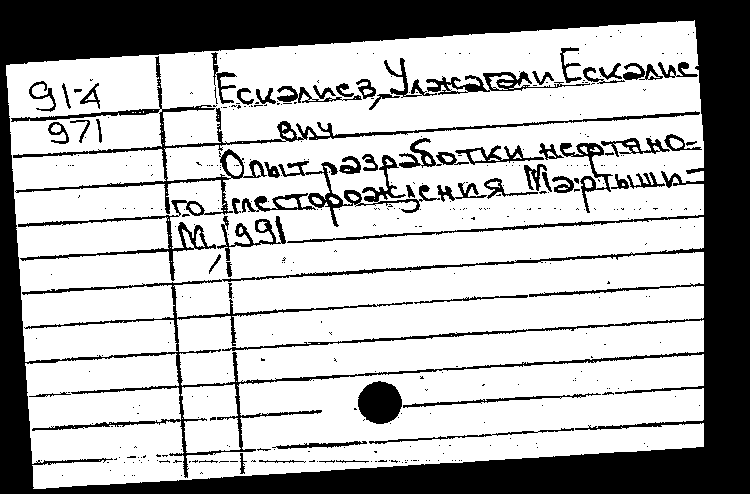 91-4 Ескалиев, Улжагали Ескалие-
971 вич
Опыт разработки нефтяно-
го месторождения Мартыши-
М, 1991